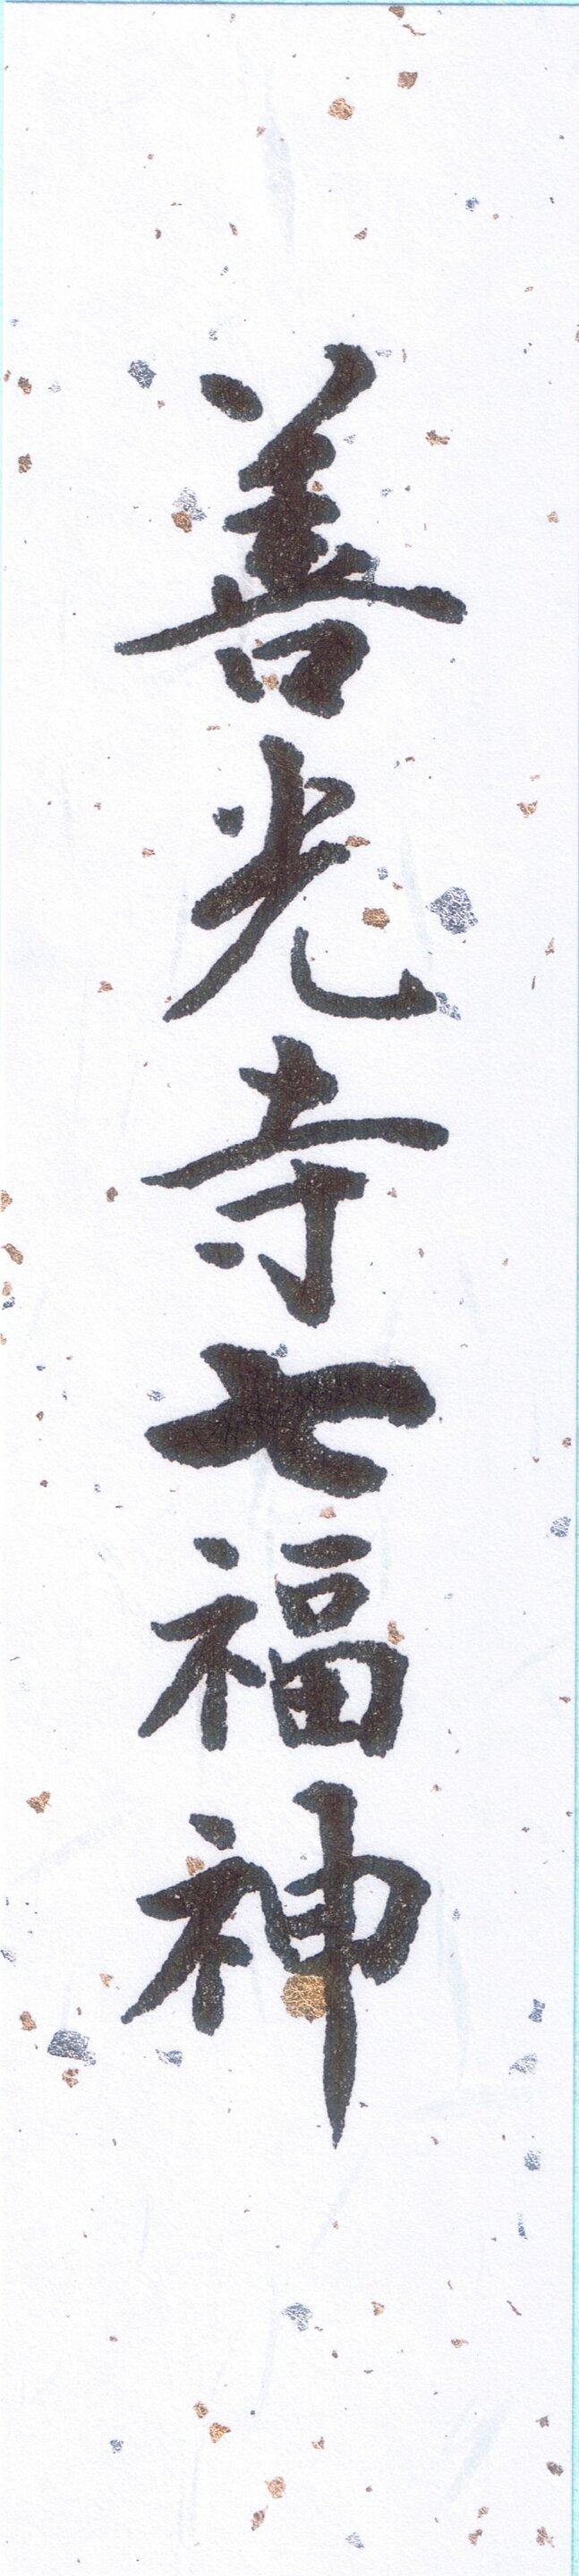 善光寺七福神